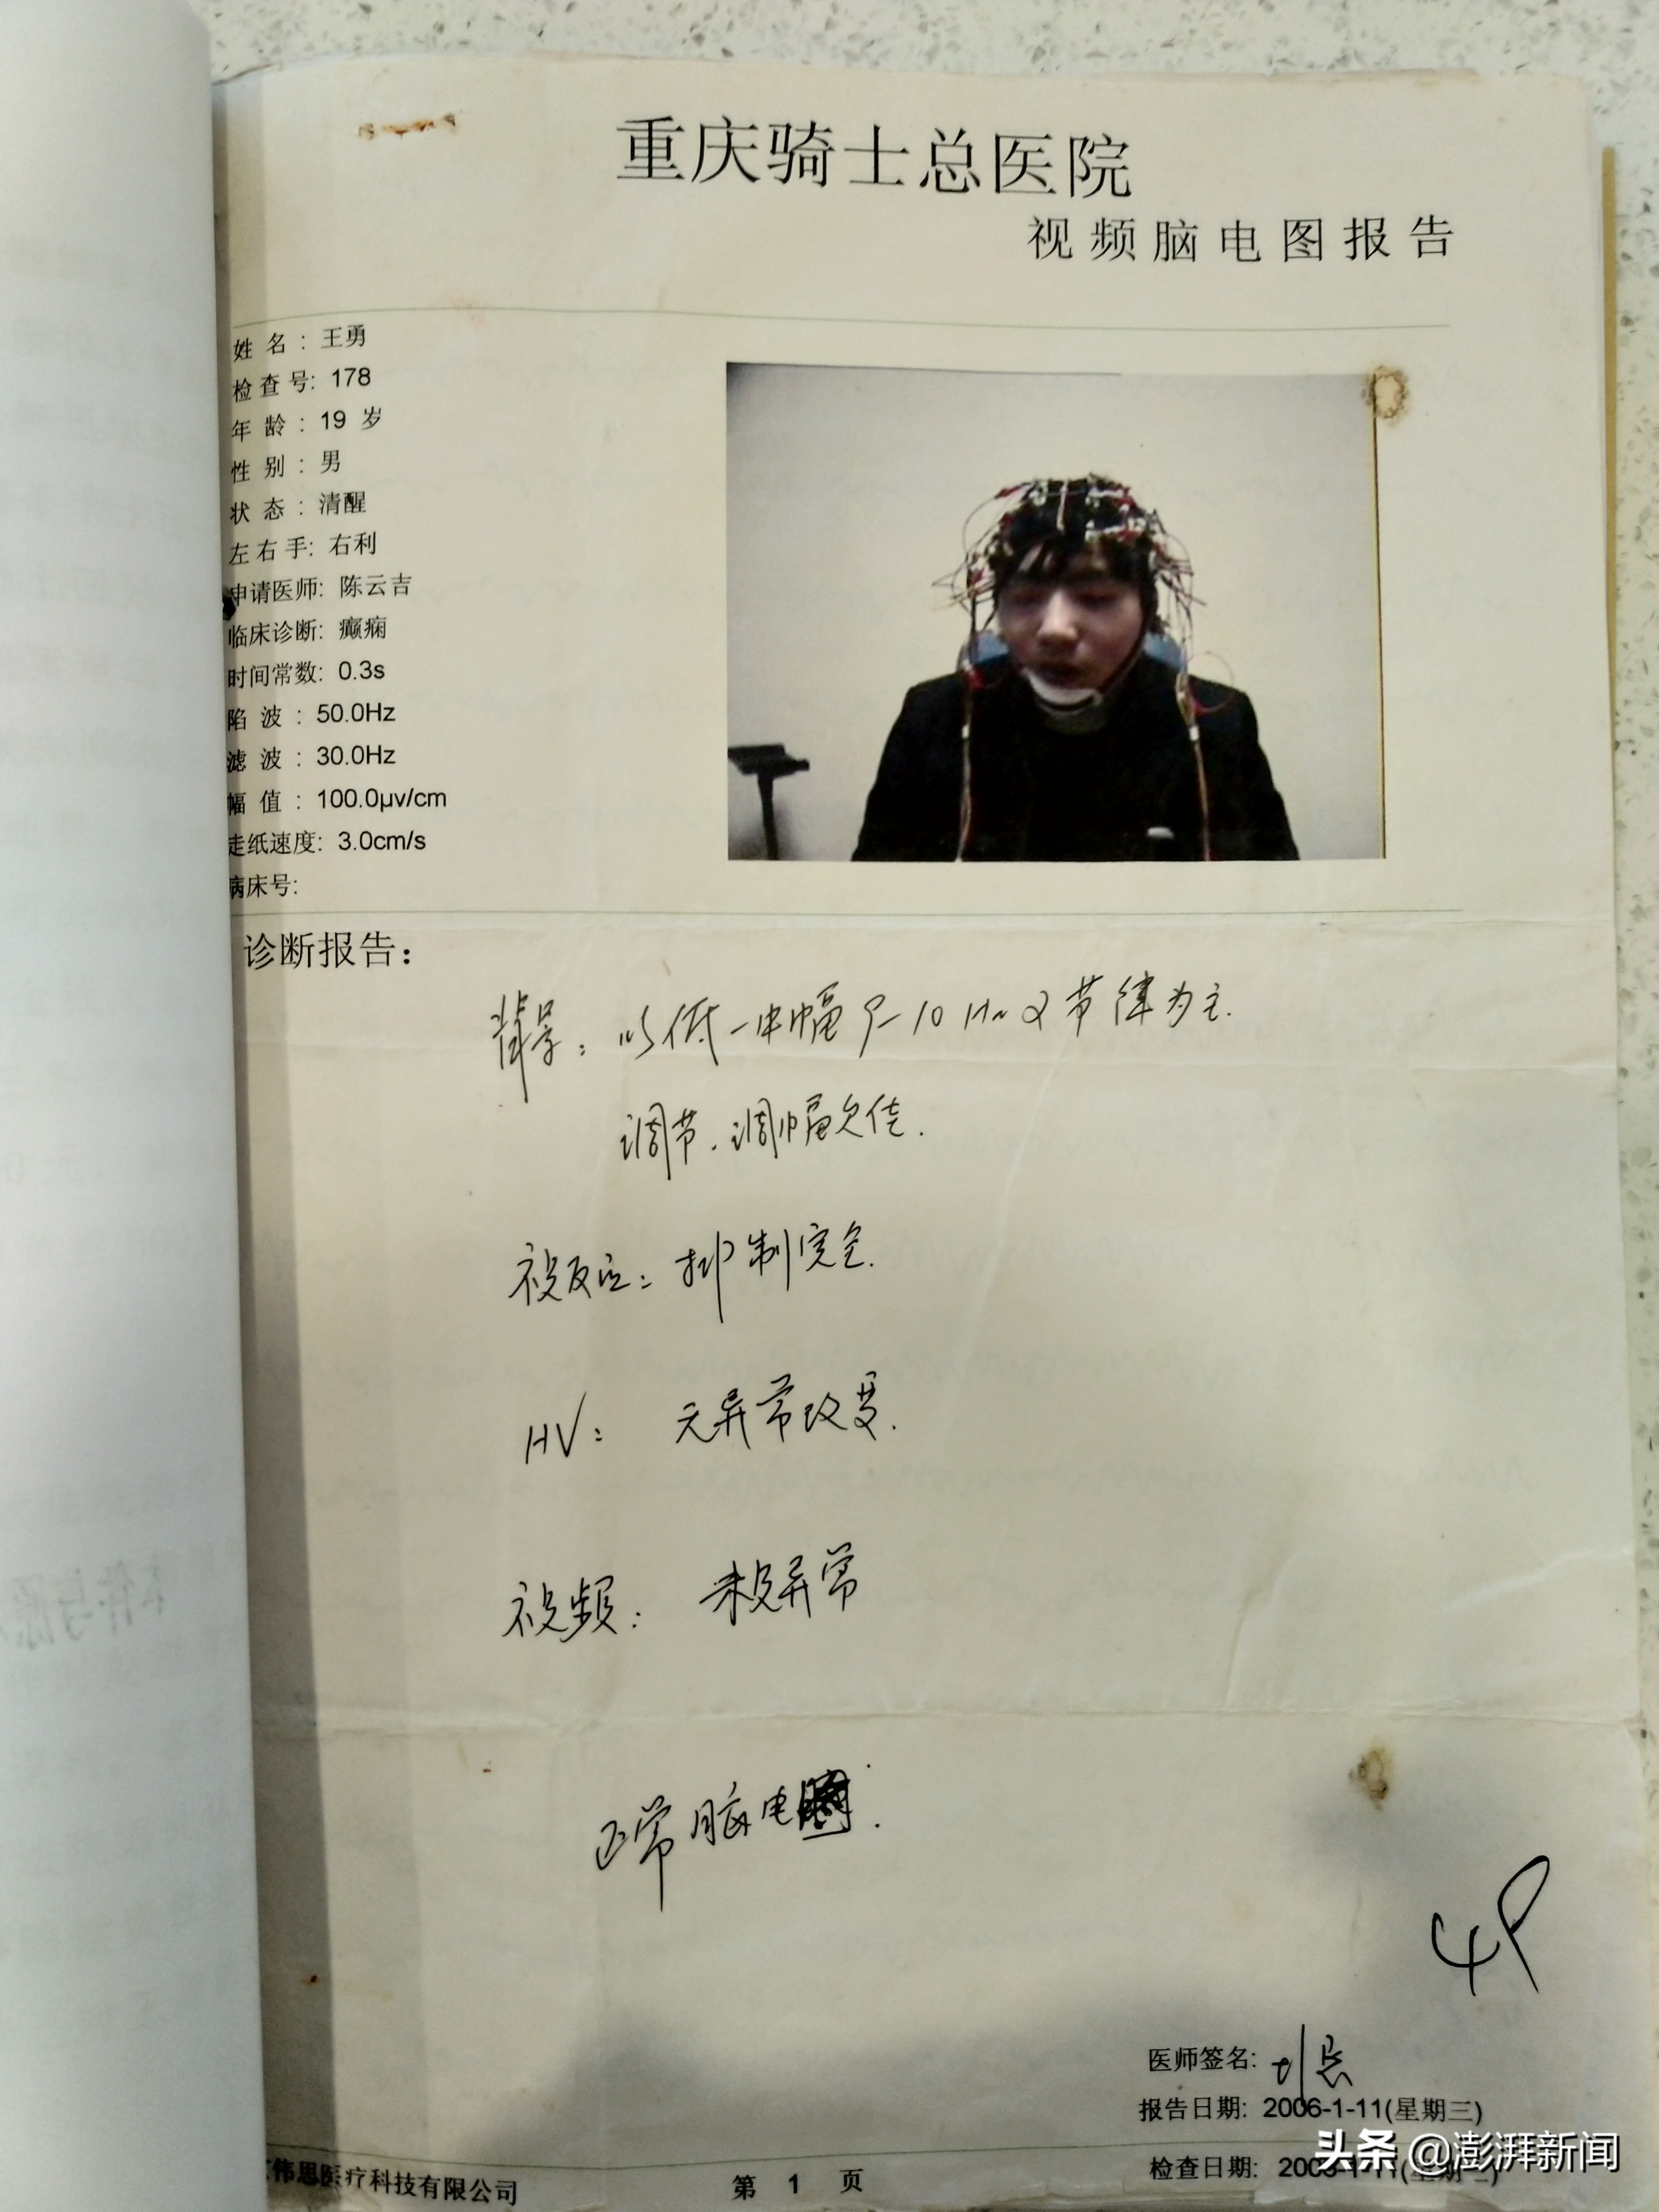 重庆骑士总医院
视频脑电图报告
姓 名 : 王勇
检查号: 178
年 龄 : 19 岁
性 别 : 男
状 态 : 清醒
左右手: 右利
申请医师: 陈云吉
临床诊断: 癫痫
时间常数: 0.3s
陷 波 : 50.0Hz
滤 波 : 30.0Hz
幅 值 : 100.0μv/cm
走纸速度: 3.0cm/s
病床号:
诊断报告:
背景: 以低-中幅9-10Hz α节律为主.
调节.调幅欠佳.
视反应: 抑制完全.
HV: 无异常改变.
视频: 未见异常
正常脑电图.
医师签名:
报告日期: 2006-1-11(星期三)
检查日期:
伟思医疗科技有限公司
第 1 页
头条 @澎湃新闻